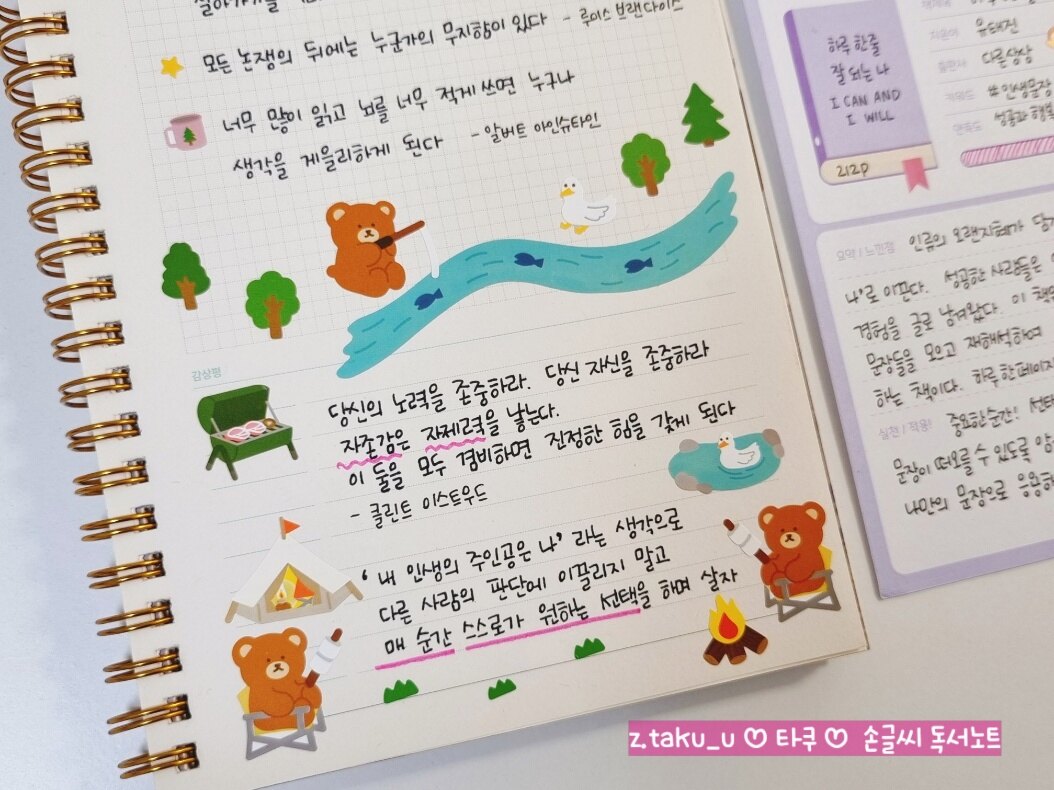 모든 논쟁의 뒤에는 누군가의 무지함이 있다 - 루이스 브랜다이스
너무 많이 읽고 뇌를 너무 적게 쓰면 누구나
생각을 게을리하게 된다 - 알버트 아인슈타인
감상평
당신의 노력을 존중하라. 당신 자신을 존중하라
자존감은 자제력을 낳는다.
이 둘을 모두 겸비하면 진정한 힘을 갖게 된다
- 클린트 이스트우드
' 내 인생의 주인공은 나' 라는 생각으로
다른 사람의 판단에 이끌리지 말고
매 순간 스스로가 원하는 선택을 해며 살자
하루 한줄
잘 되는 나
I CAN AND
I WILL
212p
지은이 유태진
출판사 다른상상
키워드 #인생문장
만족도 성공과 행복
요약 / 느낀점 인류의 오랜지혜가
나'로 이끈다. 성공한 사람들은
경험을 글로 남겨왔다. 이 책
문장들을 모으고 재해석하여
하는 책이다. 하루한페이지
실천 / 적용! 중요한순간! 선택
문장이 떠오를 수 있도록
나만의 문장으로 응용해
z.taku_u ♡ 타쿠 ♡ 손글씨 독서노트